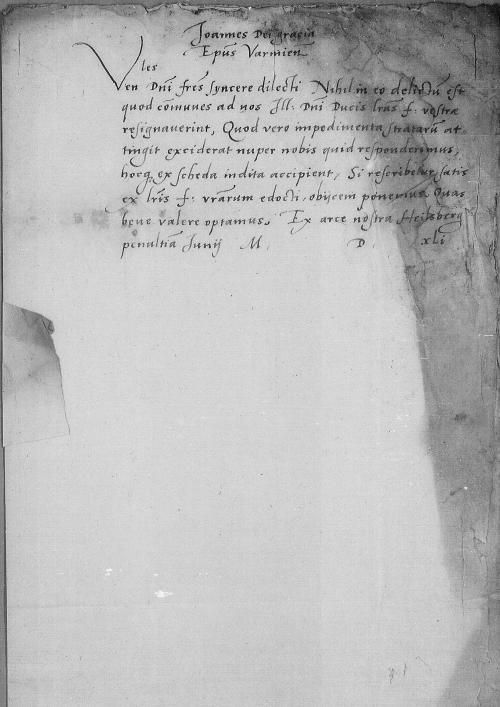 Joannes Dei gracia
Epus Varmien
Vles
Ven Dni frēs syncere dilecti Nihil in eo delictū est
quod cōmunes ad nos Ill: Dni Ducis lrās f: vestrae
resignauerint, Quod vero impedimenta stratarū at
tingit exciderat nuper nobis quid responderimus,
hocq ex scheda indita accipient, Si rescribetur satis
ex lrīs f: vrārum edocti, obijcem ponemus. Quas
bene valere optamus. Ex arce nostra Heilsberg
penultīa Junij M. D. xli